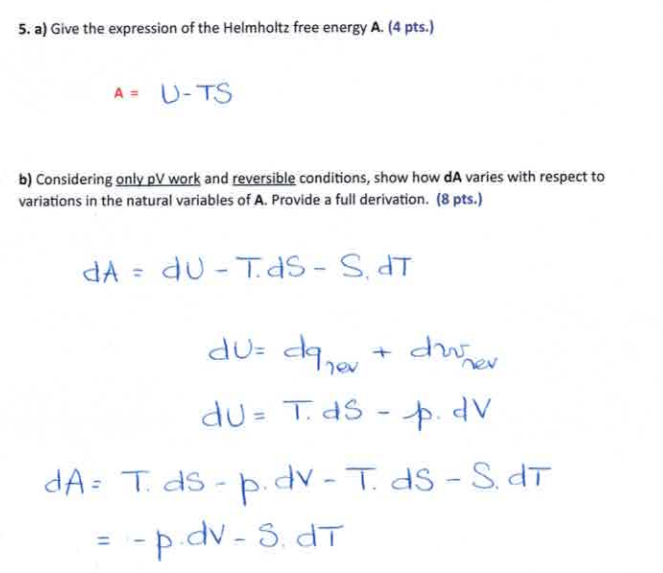 5. a) Give the expression of the Helmholtz free energy A. (4 pts.)
A = U-TS
b) Considering only pV work and reversible conditions, show how dA varies with respect to
variations in the natural variables of A. Provide a full derivation. (8 pts.)
dA = dU - T.dS - S.dT
dU = dq_rev + dw_rev
dU = T.dS - p.dV
dA = T.dS - p.dV - T.dS - S.dT
= -p.dV - S.dT